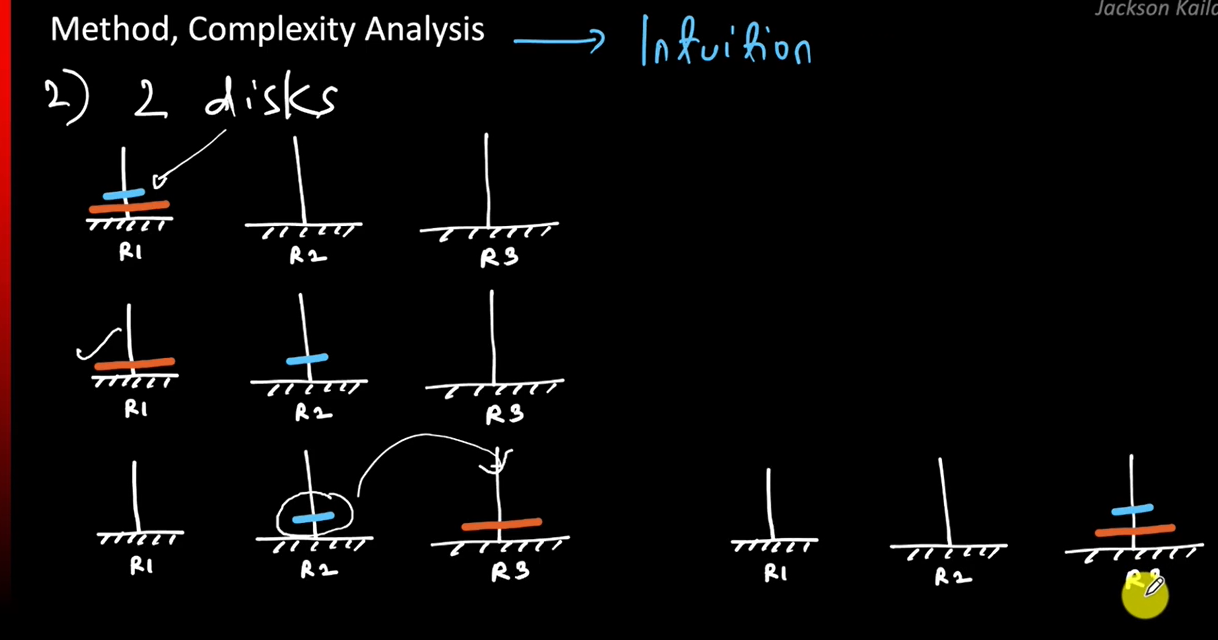 Jackson Kaila
Method, Complexity Analysis → Intuition
2) 2 disks
R1 R2 R3
R1 R2 R3
R1 R2 R3 R1 R2 R3